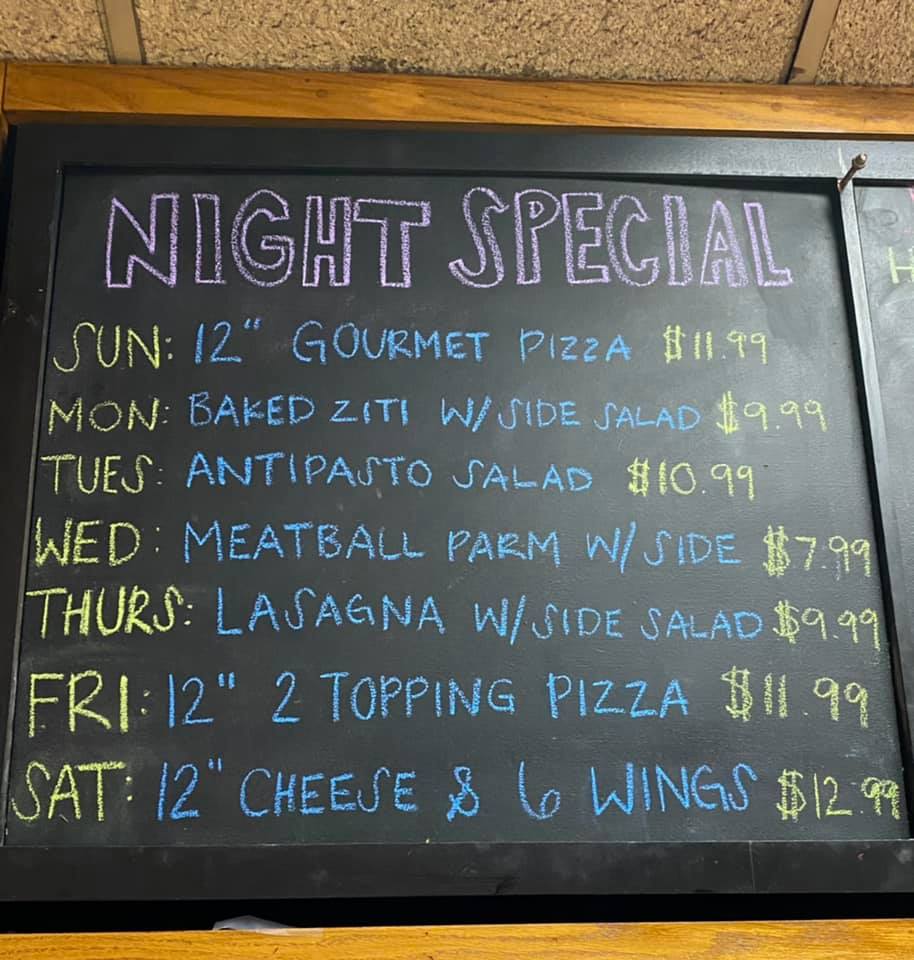 NIGHT SPECIAL
SUN: 12" GOURMET PIZZA $11.99
MON: BAKED ZITI W/ SIDE SALAD $9.99
TUES: ANTIPASTO SALAD $10.99
WED: MEATBALL PARM W/ SIDE $7.99
THURS: LASAGNA W/ SIDE SALAD $9.99
FRI: 12" 2 TOPPING PIZZA $11.99
SAT: 12" CHEESE & 6 WINGS $12.99